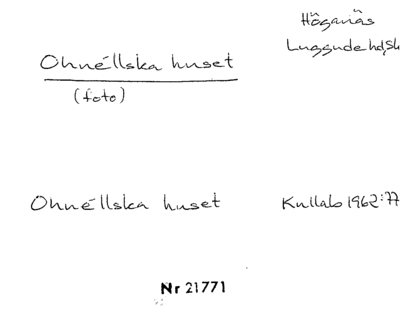 Höganäs
Luggude hd, Sk
Ohnéllska huset
(foto)
Ohnéllska huset
Kullab 1962:77
Nr 21771